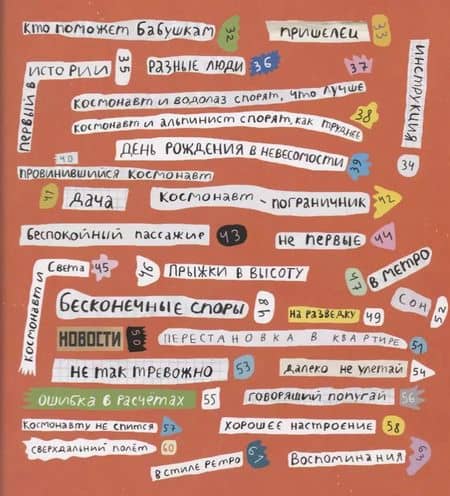 Кто поможет бабушкам 32
Пришелец 33
Инструкция 34
Первый в истории 35
Разные люди 36
37
Космонавт и водолаз спорят, что лучше
Космонавт и альпинист спорят, как труднее 38
День рождения в невесомости 39
40
Провинившийся космонавт
41 Дача
Космонавт - пограничник 42
Беспокойный пассажир 43
Не первые 44
Космонавт и Света 45
46 Прыжки в высоту
47 В метро
Бесконечные споры 48
На разведку 49
Сон 52
Новости 50
Перестановка в квартире 51
Не так тревожно 53
Далеко не улетай 54
Ошибка в расчётах 55
Говорящий попугай 56
Космонавту не спится 57
Хорошее настроение 58
Сверхдальний полёт 60
В стиле ретро 61
Воспоминания 63